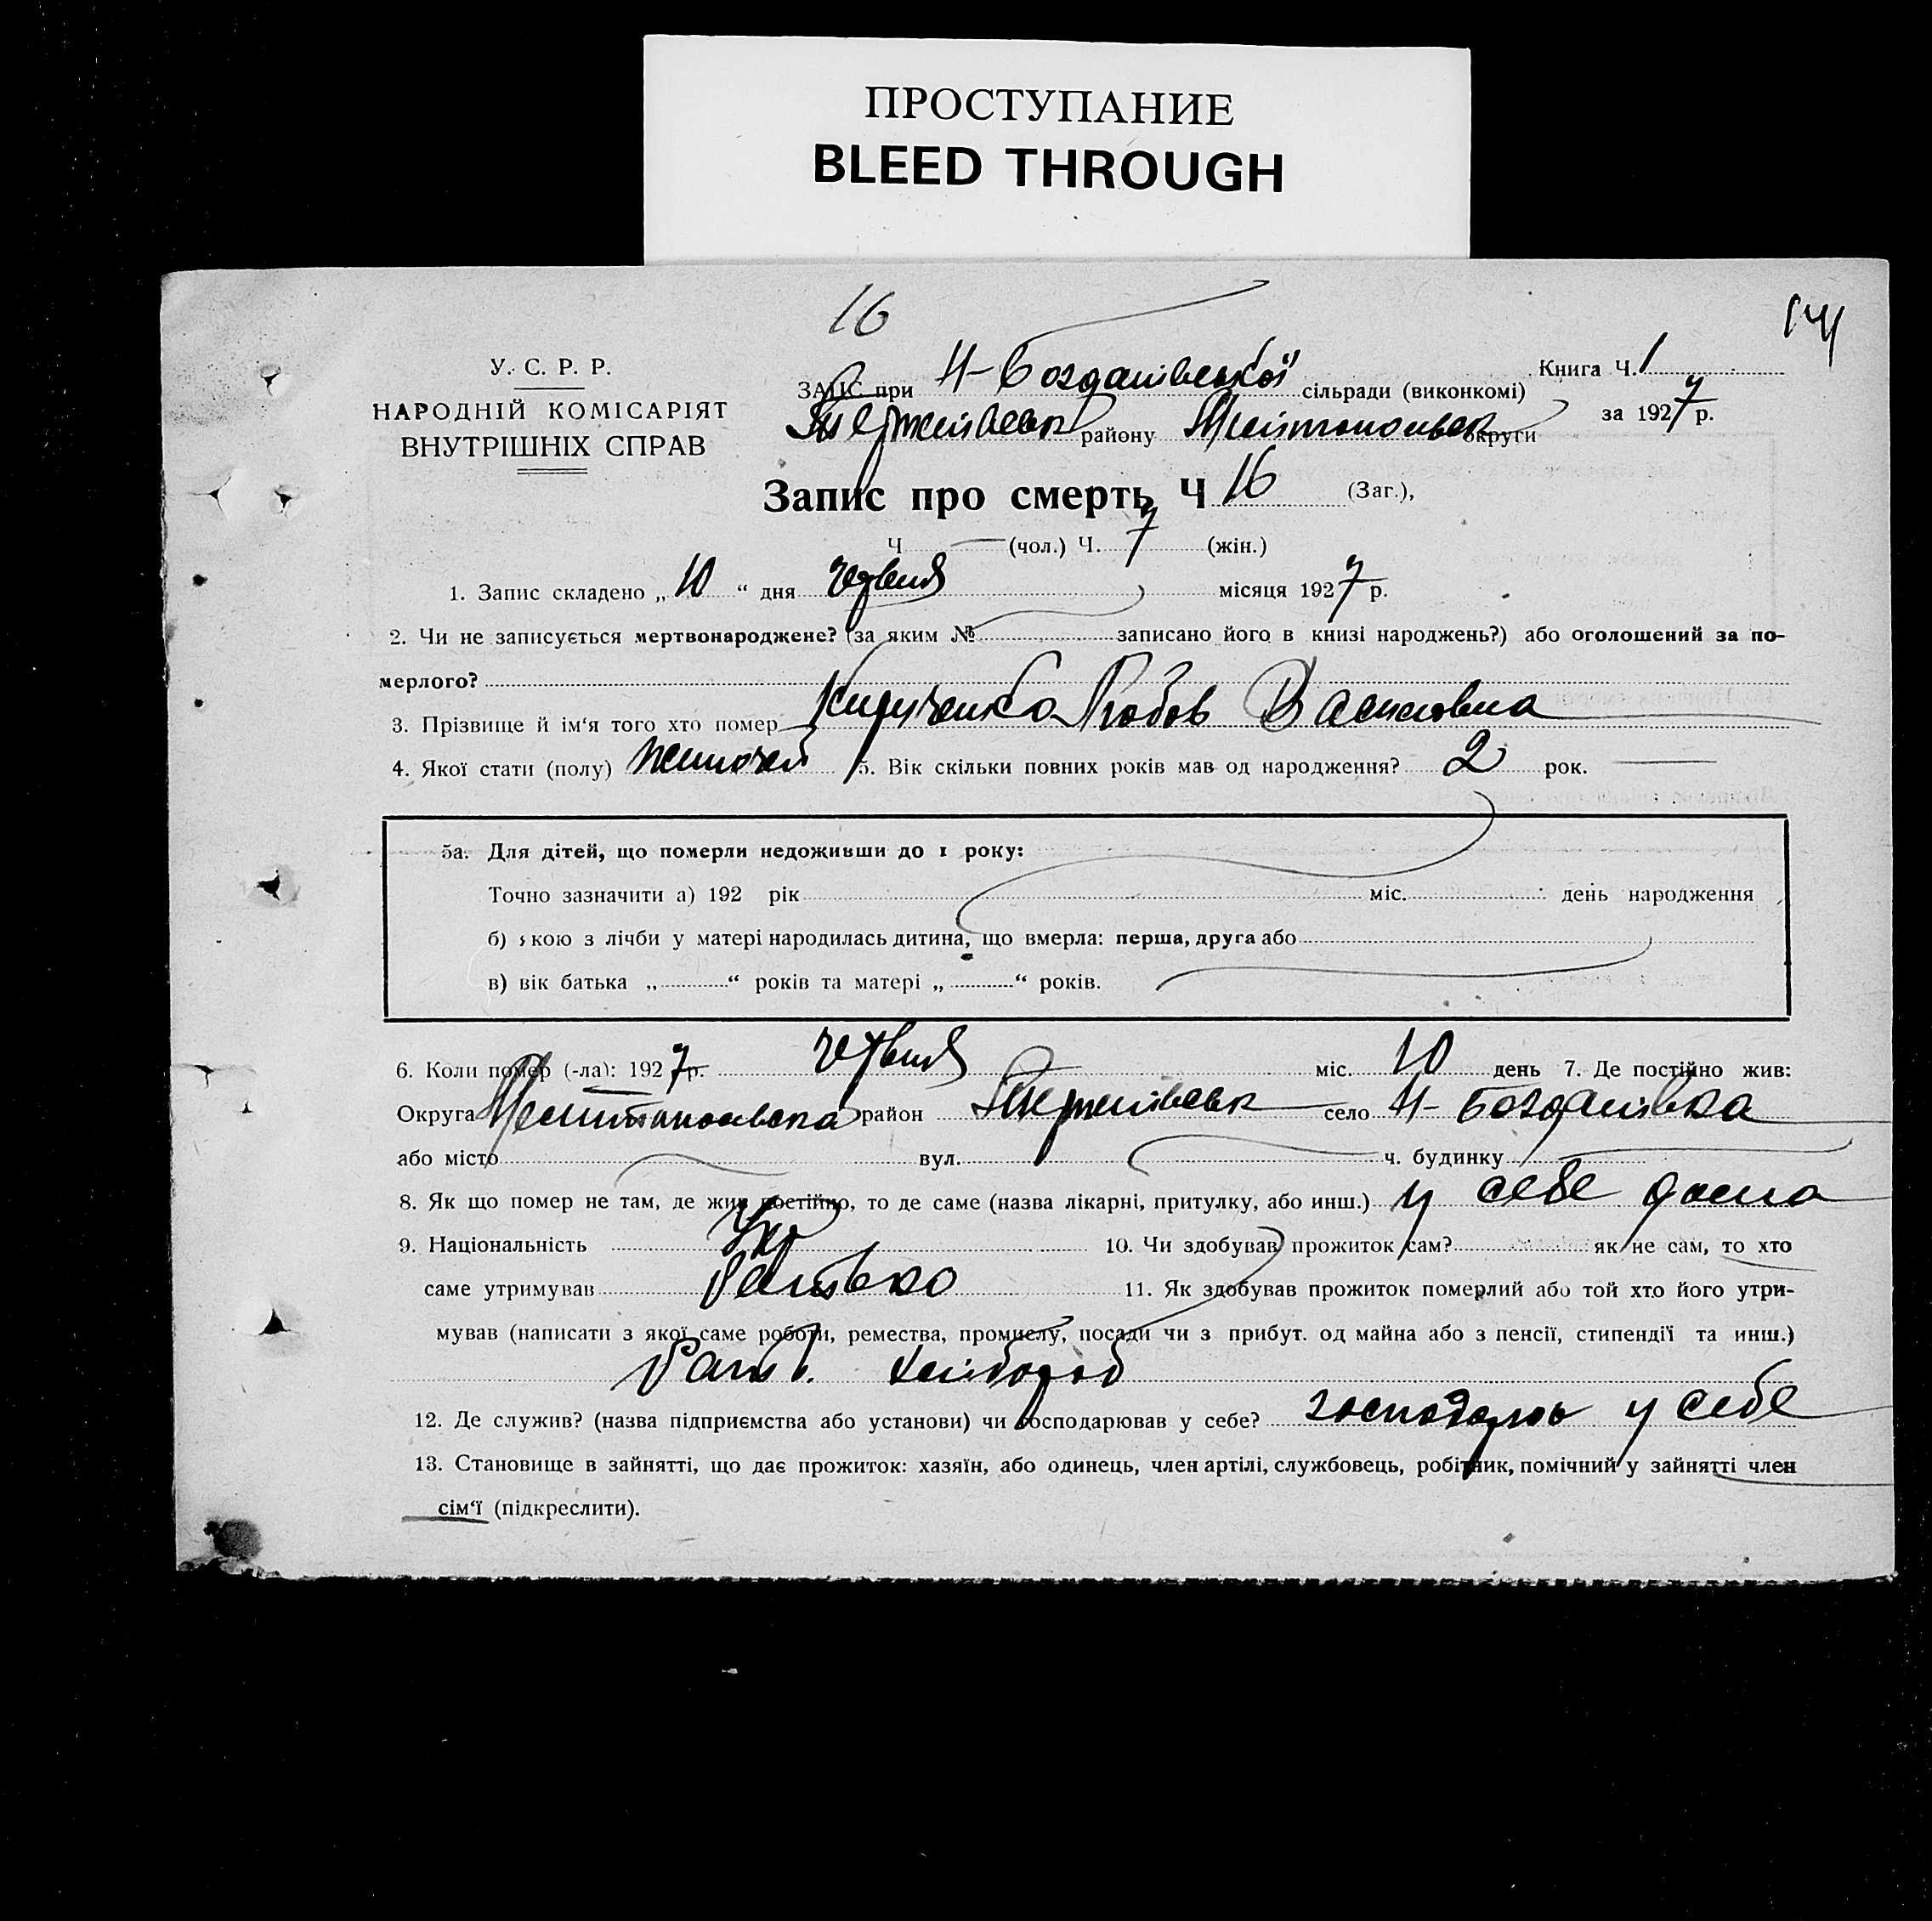 ПРОСТУПАНИЕ
BLEED THROUGH
16
У. С. Р. Р.
НАРОДНІЙ КОМІСАРІЯТ
ВНУТРІШНІХ СПРАВ
ЗАГС при Н-Богданівської сільради (виконкомі)
району округи
Книга Ч. 1
за 1927 р.
Запис про смерть Ч 16 (Заг.),
Ч — (чол.) Ч. 7 (жін.)
1. Запис складено „ 10 “ дня червня місяця 1927 р.
2. Чи не записується мертвонароджене? (за яким № записано його в книзі народжень?) або оголошений за по-
мерлого?
3. Прізвище й ім'я того хто помер Любов Василівна
4. Якої стати (полу) жиночей 5. Вік скільки повних років мав од народження? 2 рок.
5а. Для дітей, що померли недоживши до 1 року:
Точно зазначити а) 192 рік міс. день народження
б) якою з лічби у матері народилась дитина, що вмерла: перша, друга або
в) вік батька „ “ років та матері „ “ років.
6. Коли помер (-ла): 1927 р. червня міс. 10 день 7. Де постійно жив:
Округа район село Н-Богданівка
або місто вул. ч. будинку
8. Як що помер не там, де жив постійно, то де саме (назва лікарні, притулку, або инш.) у себе дома
9. Національність Укр 10. Чи здобував прожиток сам? як не сам, то хто
саме утримував Батько 11. Як здобував прожиток померлий або той хто його утри-
мував (написати з якої саме роботи, ремества, промислу, посади чи з прибут. од майна або з пенсії, стипендії та инш.)
Бать. хлібороб
12. Де служив? (назва підприємства або установи) чи господарював у себе? у себе
13. Становище в зайнятті, що дає прожиток: хазяїн, або одинець, член артілі, службовець, робітник, помічний у зайнятті член
сім'ї (підкреслити).